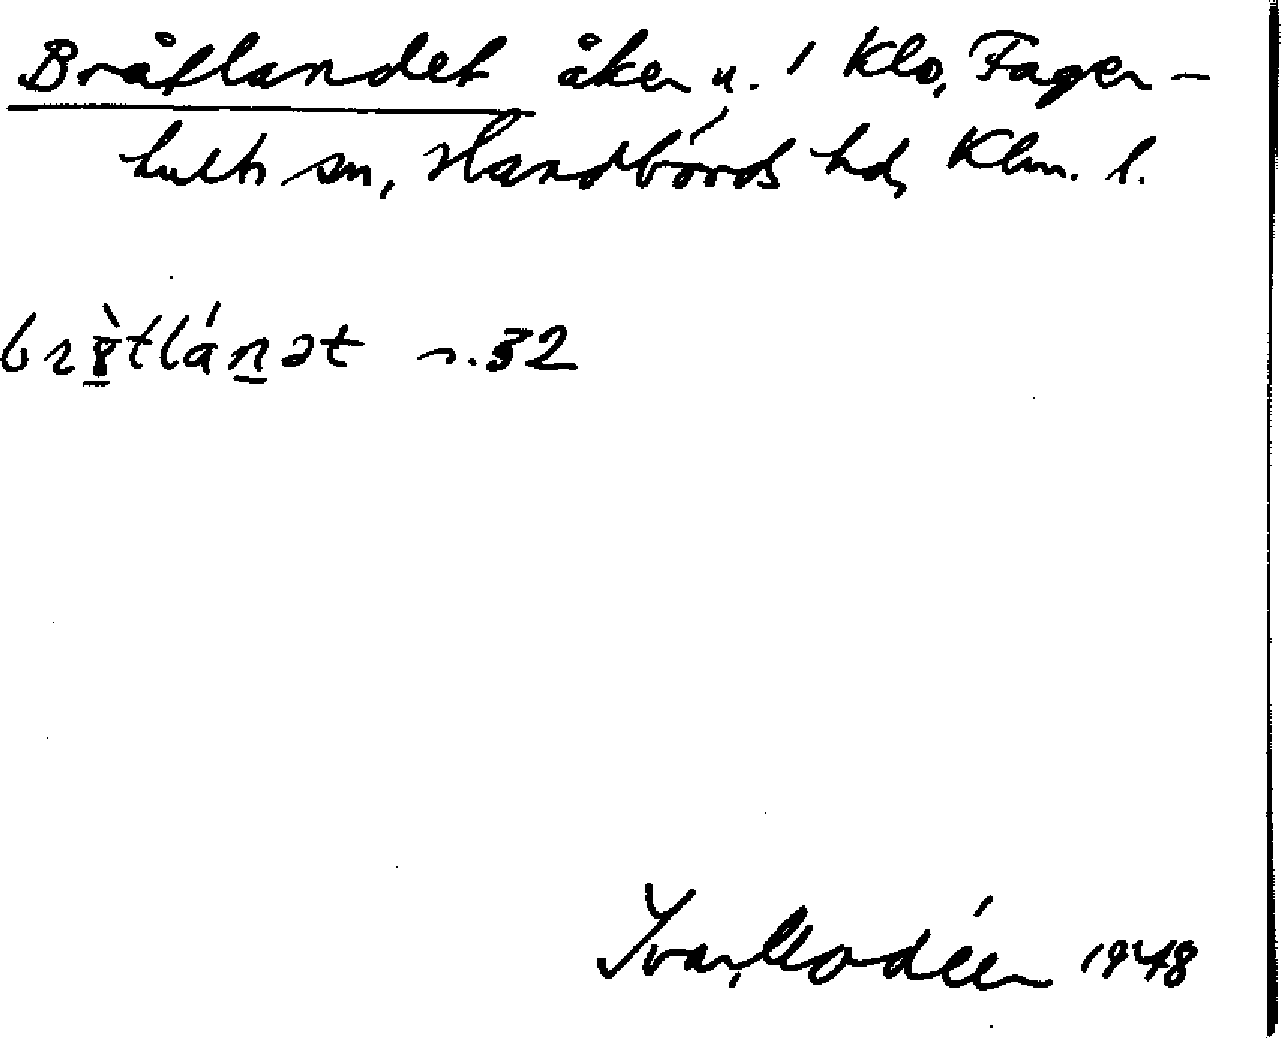 Bråtlandet åker u. i Klo, Fager-
hults sn, Handbörds hd, Klm. l.
brɣ̀tlánət s. 32
Ivar Modéer 1948